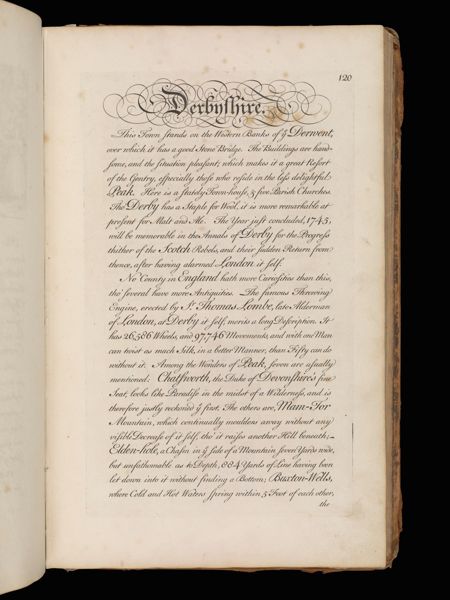 120
Derbyshire.
This Town stands on the Western Banks of ỹ Derwent,
over which it has a good Stone Bridge. The Buildings are hand-
some, and the situation pleasant; which makes it a great Resort
of the Gentry, especially those who reside in the less delightful
Peak. Here is a stately Town-house, & five Parish Churches.
Tho' Derby has a Staple for Wool, it is more remarkable at
present for Malt and Ale. The Year just concluded, 1745,
will be memorable in the Annals of Derby for the Progress
thither of the Scotch Rebels, and their sudden Return from
thence, after having alarmed London it self.
No County in England hath more Curiosities than this,
tho' several have more Antiquities. The famous Throwing
Engine, erected by Sr. Thomas Lombe, late Alderman
of London, at Derby it self, merits a long Description. It
has 26,586 Wheels, and 97,746 Movements, and with one Man
can twist as much Silk, in a better Manner, than Fifty can do
without it. Among the Wonders of Peak, seven are usually
mentioned: Chatsworth, the Duke of Devonshire's fine
Seat, looks like Paradise in the midst of a Wilderness, and is
therefore justly reckon'd ỹ first. The others are, Mam-Tor
Mountain, which continually moulders away without any
visible Decrease of it self, tho' it raises another Hill beneath;
Elden-hole, a Chasm in ỹ side of a Mountain seven Yards wide,
but unfathomable as to Depth, 884 Yards of Line having been
let down into it without finding a Bottom; Buxton-Wells,
where Cold and Hot Waters spring within 5 Feet of each other,
the